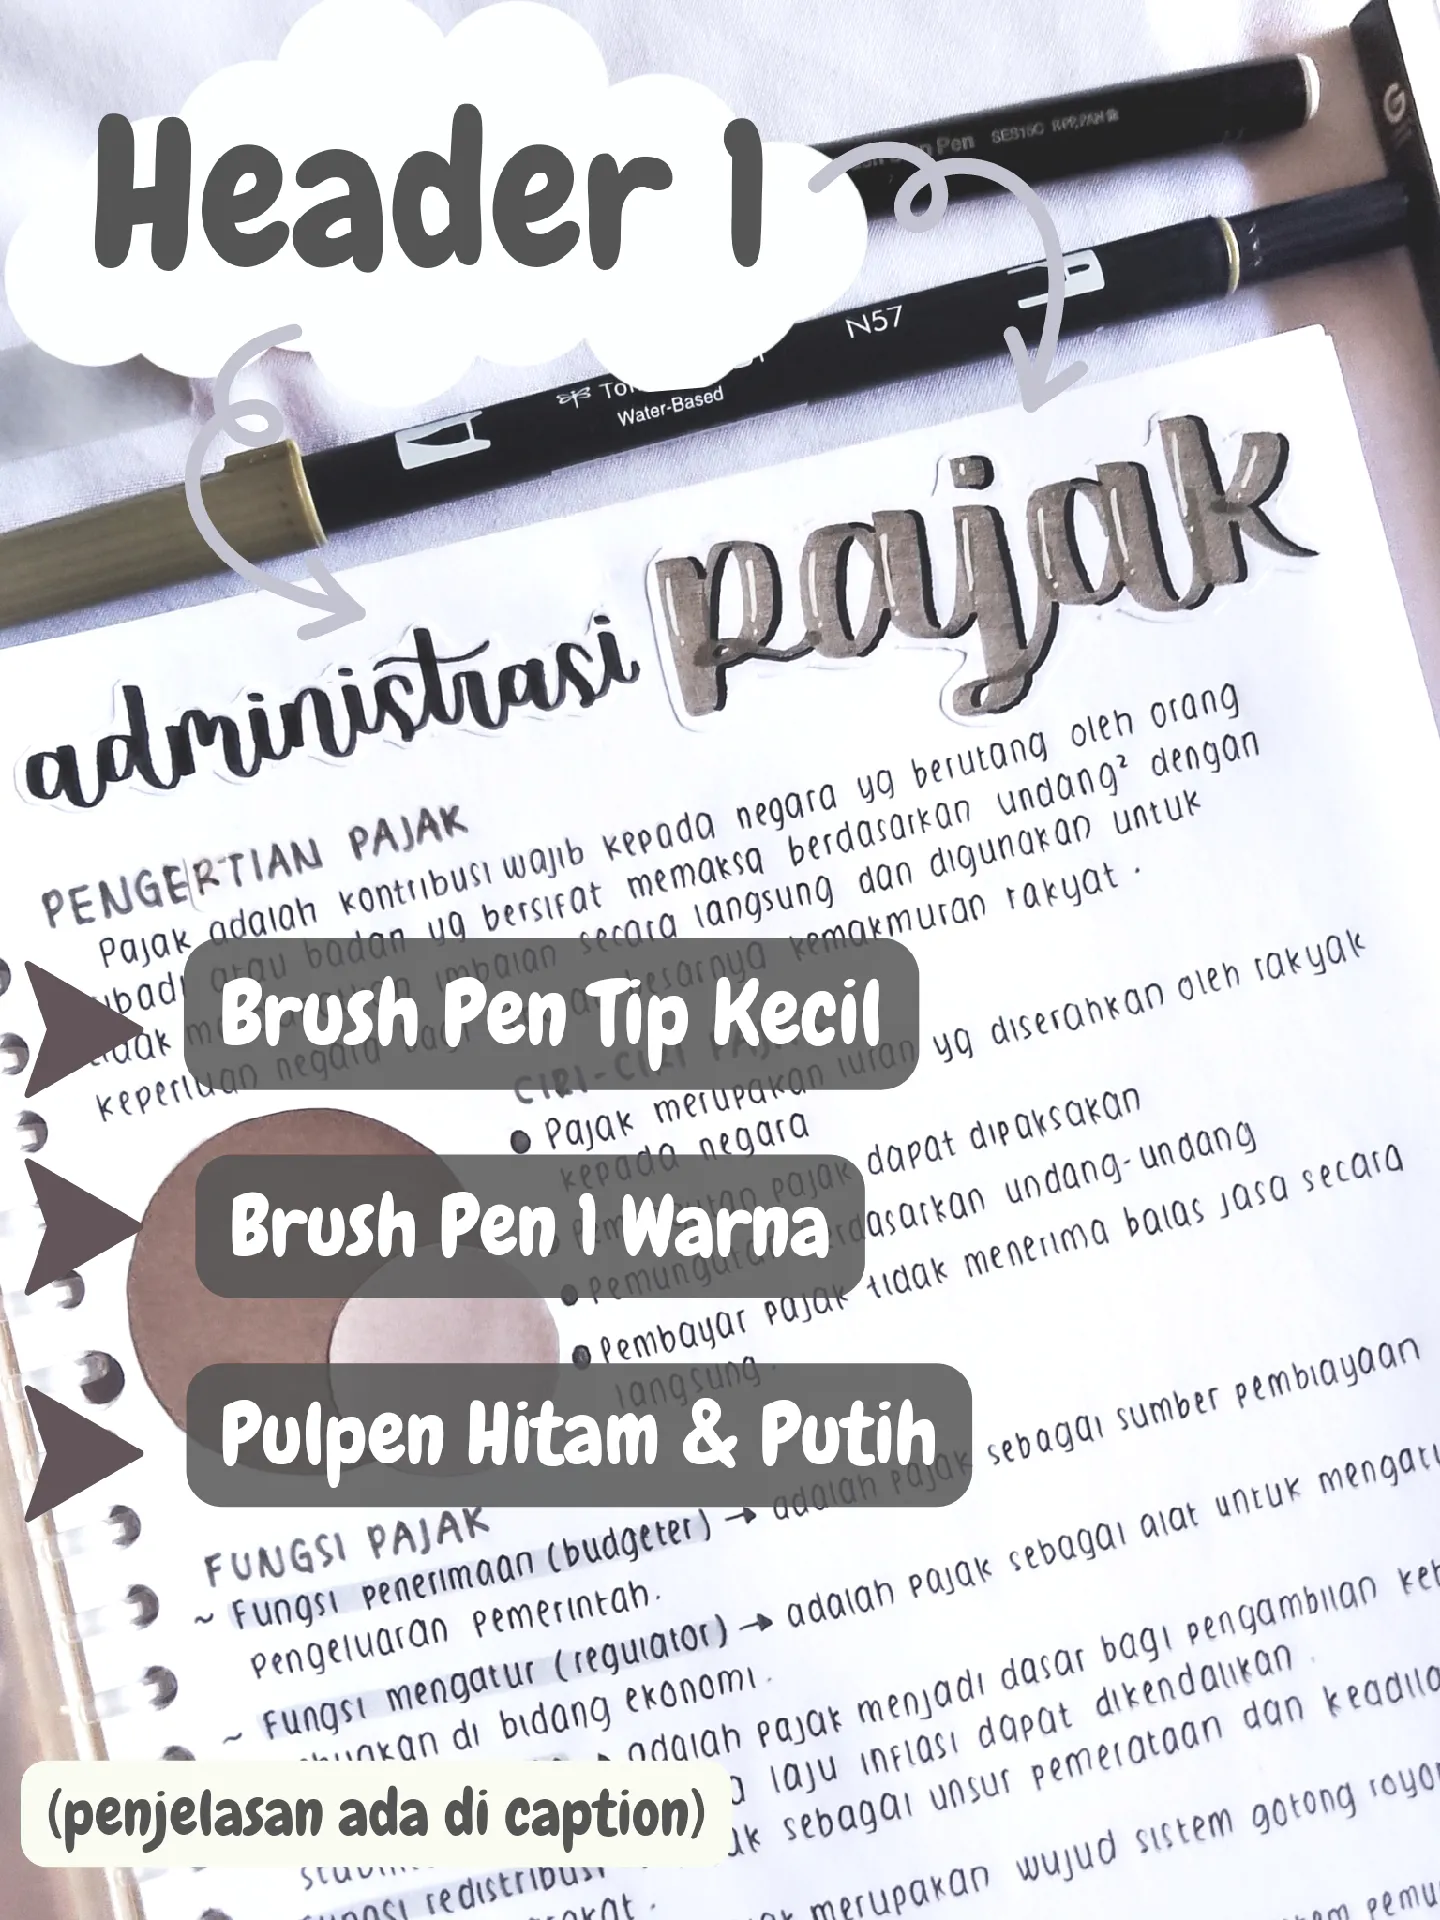 Header 1
Pen SES15C
N57
Water-Based
administrasi pajak
PENGERTIAN PAJAK
Pajak adalah kontribusi wajib kepada negara yg berutang oleh orang
atau badan yg bersifat memaksa berdasarkan undang² dengan
imbalan secara langsung dan digunakan untuk
keperluan negara bagi kemakmuran rakyat.
Brush Pen Tip Kecil
CIRI-CIRI
• Pajak merupakan iuran yg diserahkan oleh rakyak
kepada negara
pajak dapat dipaksakan
Brush Pen 1 Warna
• Pemungutan berdasarkan undang-undang
• Pembayar pajak tidak menerima balas jasa secara
langsung.
Pulpen Hitam & Putih
FUNGSI PAJAK
~ Fungsi penerimaan (budgeter) → adalah pajak sebagai sumber pembiayaan
pengeluaran pemerintah.
~ Fungsi mengatur (regulator) → adalah pajak sebagai alat untuk
di bidang ekonomi.
adalah pajak menjadi dasar bagi pengambilan
laju inflasi dapat dikendalikan.
(penjelasan ada di caption)
sebagai unsur pemerataan dan
redistribusi
merupakan wujud sistem gotong